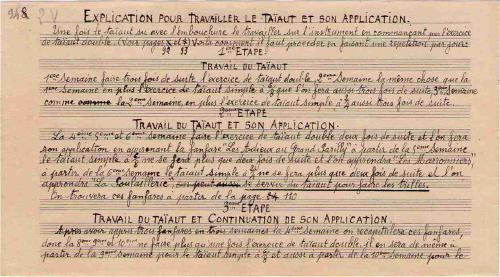 248
EXPLICATION POUR TRAVAILLER LE TAÏAUT ET SON APPLICATION.
Une fois le taïaut su avec l'embouchure le travailler sur l'instrument en commençant par l'exercice
de taïaut double. (Voir pages et) Voilà comment il faut procéder en faisant une répétition par jour:
92 93
1ère ETAPE:
TRAVAIL DU TAÏAUT
1ère Semaine faire trois fois de suite l'exercice de taïaut double, 2ème Semaine la même chose que la
1ère Semaine en plus l'exercice de taïaut simple à 2/4 que l'on fera aussi trois fois de suite, 3ème Semaine
comme la 2ème Semaine, en plus l'exercice de taïaut simple à aussi trois fois de suite.
2ème ETAPE
TRAVAIL DU TAÏAUT ET SON APPLICATION.
La 4ème 5ème et 6ème Semaine faire l'Exercice de taïaut double deux fois de suite et l'on fera
son application en apprenant la fanfare "Les Adieux au Grand Bailly" à partir de la 5ème Semaine
le taïaut simple à ne se fera plus que deux fois de suite et l'on apprendra "Les Marronniers"
à partir de la 6ème Semaine le taïaut simple à ne se fera plus que deux fois de suite et l'on
apprendra "La se servir du taïaut pour faire les trilles.
On trouvera ces fanfares à partir de la page 110
3ème ETAPE
TRAVAIL DU TAÏAUT ET CONTINUATION DE SON APPLICATION.
Après avoir appris trois fanfares en trois semaines la 4ème Semaine on récapitulera ces fanfares,
donc la 8ème 9ème et 10ème ne faire plus qu'une fois l'exercice de taïaut double, il en sera de même à
partir de la 9ème Semaine pour le taïaut simple à et aussi à partir de la 10ème Semaine pour le